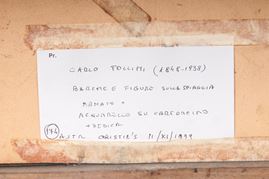 Pr.
CARLO POLLINI (1848-1938)
BARCHE E FIGURE SULLA SPIAGGIA
FIRMATO +
ACQUARELLO SU CARTONCINO
+ DEDICA
174 ASTA CHRISTIE'S 11/XI/1999